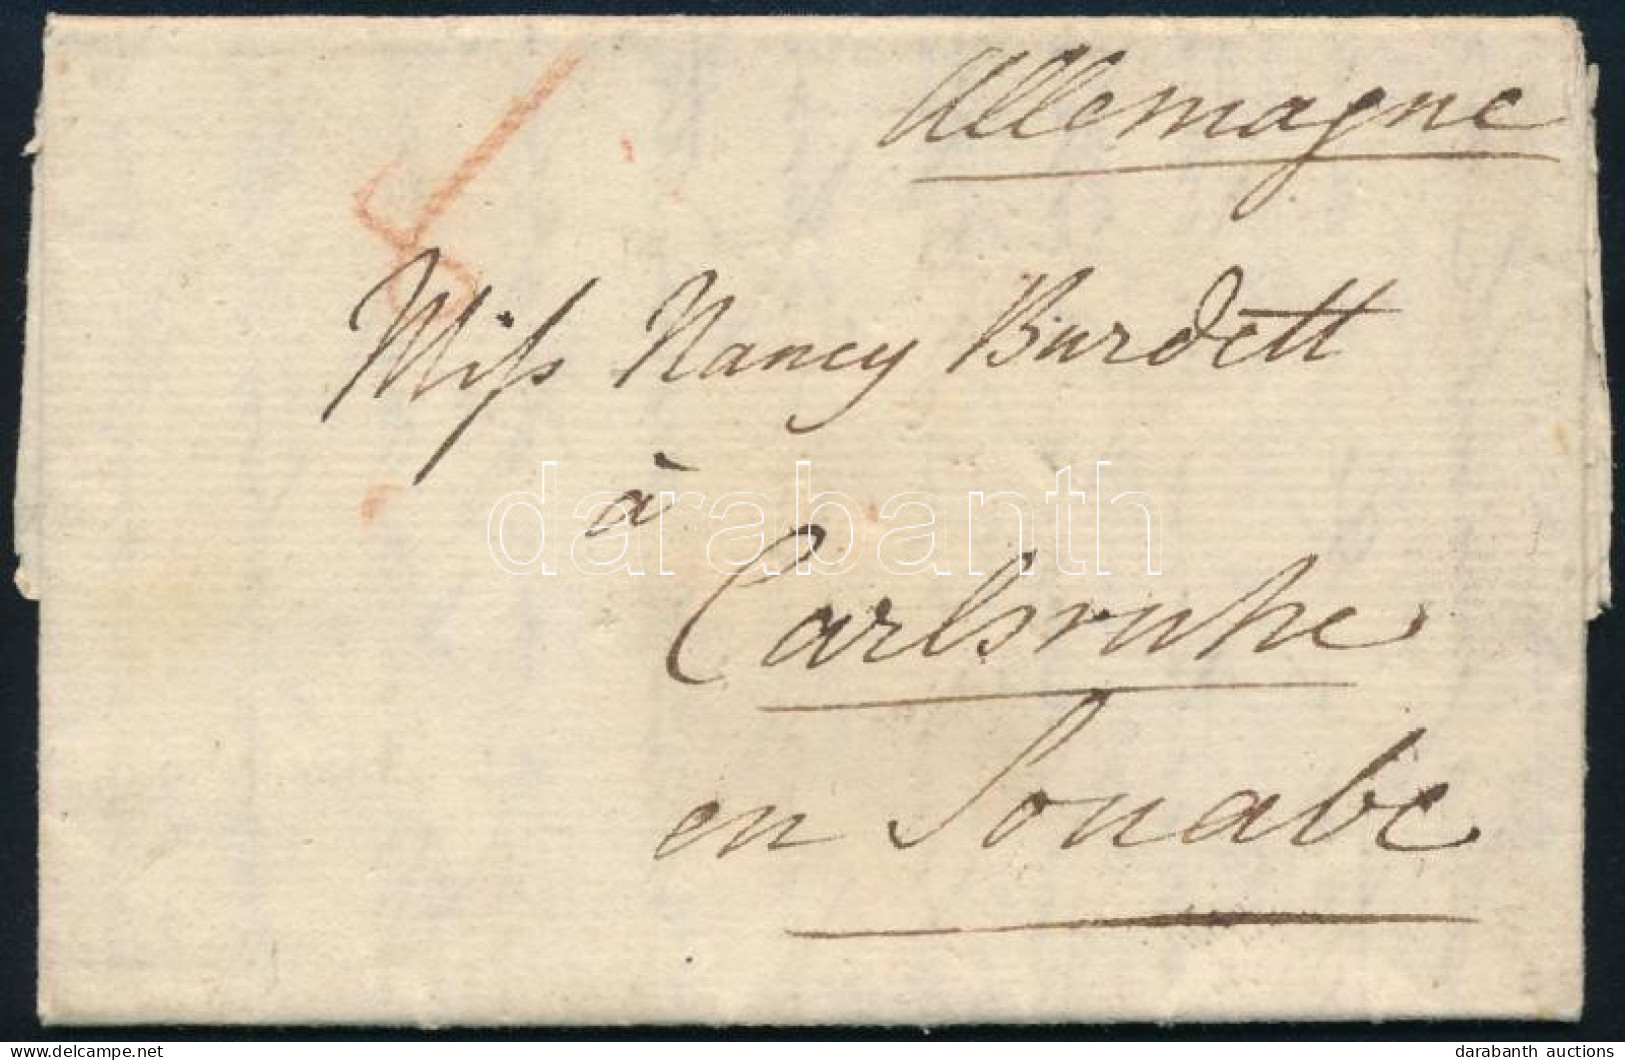 Allemagne
Miſs Nancy Burdett
à
darabanth
Carlsruhe
en Souabe
darabanth auctions